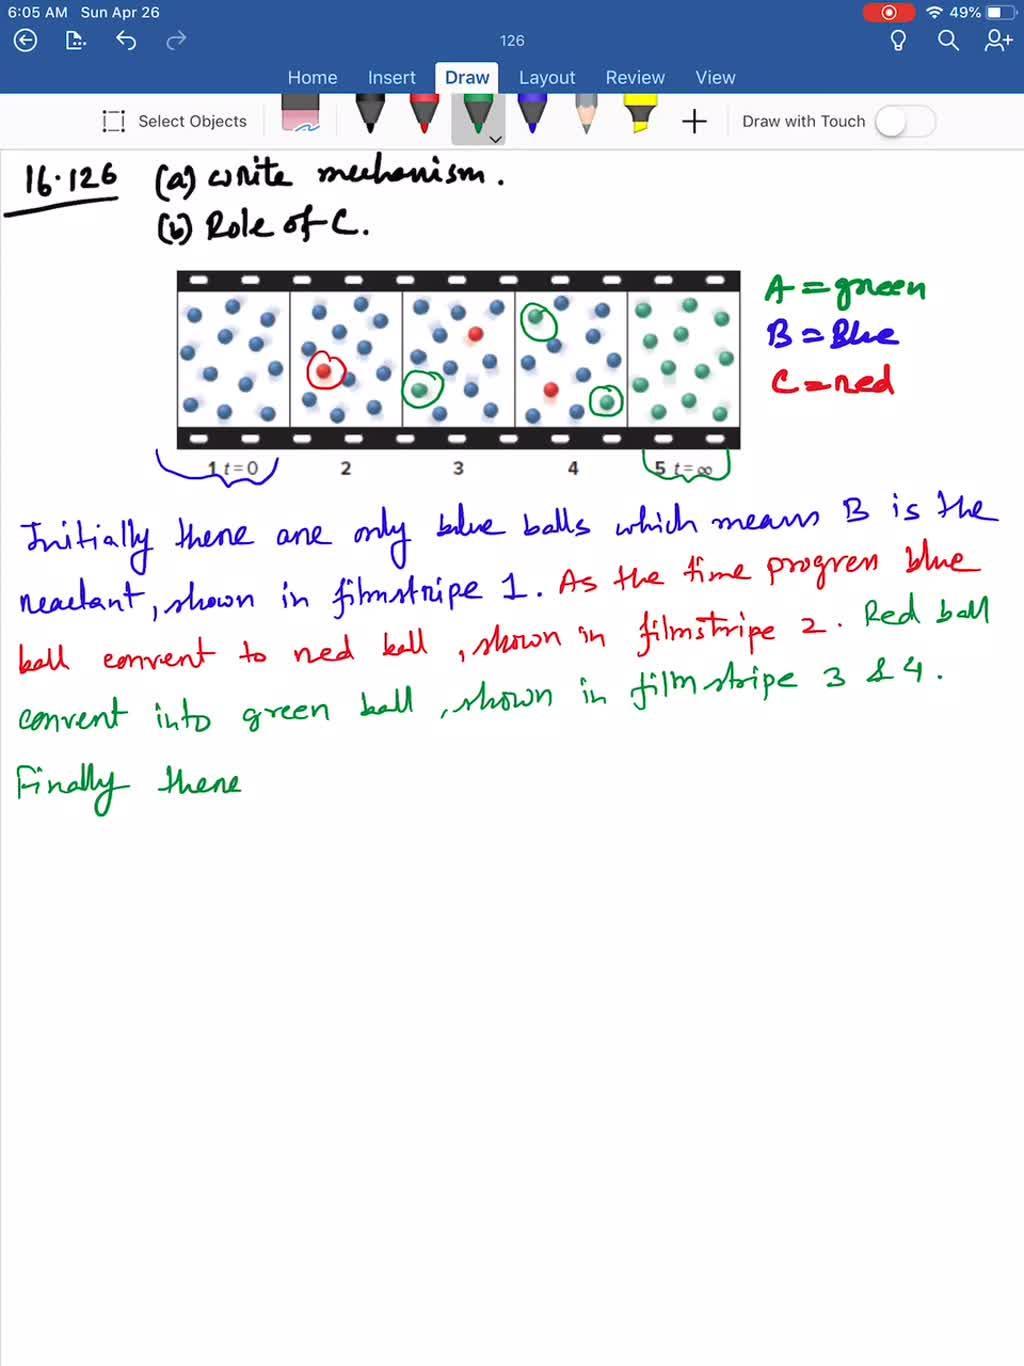 6:05 AM Sun Apr 26
49%
126
Home Insert Draw Layout Review View
Select Objects
Draw with Touch
16.126 (a) write mechanism.
(b) Role of C.
A = green
B = Blue
C = red
1 t = 0 2 3 4 5 t = ∞
Initially there are only blue balls which means B is the
reactant, shown in filmstripe 1. As the time progren blue
ball convert to red ball, shown in filmstripe 2. Red ball
convert into green ball, shown in film stripe 3 & 4.
Finally there